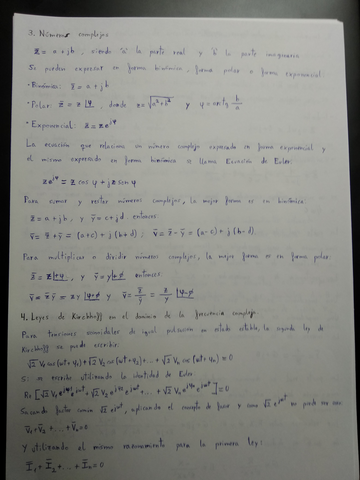 3. Números complejos
z̄ = a + jb, siendo "a" la parte real y "b" la parte imaginaria
Se pueden expresar en forma binómica, forma polar o forma exponencial:
· Binómica: z̄ = a + jb
· Polar: z̄ = z|φ, donde z = √(a²+b²) y φ = arctg b/a
· Exponencial: z̄ = z e^jφ
La ecuación que relaciona un número complejo expresado en forma exponencial y
el mismo expresado en forma binómica se llama Ecuación de Euler:
z e^jφ = z cos φ + j z sen φ
Para sumar y restar números complejos, la mejor forma es en binómica
z̄ = a + jb, y ȳ = c + jd entonces
v̄ = z̄ + ȳ = (a+c) + j(b+d); v̄ = z̄ - ȳ = (a-c) + j(b-d)
Para multiplicar o dividir números complejos, la mejor forma es en forma polar:
z̄ = z|φ, y ȳ = y|ϕ entonces
v̄ = z̄ȳ = zy|φ+ϕ y v̄ = z̄/ȳ = z/y |φ-ϕ
4. Leyes de Kirchhoff en el dominio de la frecuencia compleja
Para tensiones senoidales de igual pulsación en estado estable, la segunda ley de
Kirchhoff se puede escribir:
√2 V₁ cos(ωt+φ₁) + √2 V₂ cos(ωt+φ₂) + ... + √2 Vₙ cos(ωt+φₙ) = 0
Si se escribe utilizando la identidad de Euler
Re[√2 V₁ e^jφ₁ e^jωt + √2 V₂ e^jφ₂ e^jωt + ... + √2 Vₙ e^jφₙ e^jωt] = 0
Sacando factor común √2 e^jωt, aplicando el concepto de fasor y como √2 e^jωt no puede ser cero
V̄₁ + V̄₂ + ... + V̄ₙ = 0
Y utilizando el mismo razonamiento para la primera ley:
Ī₁ + Ī₂ + ... + Īₙ = 0